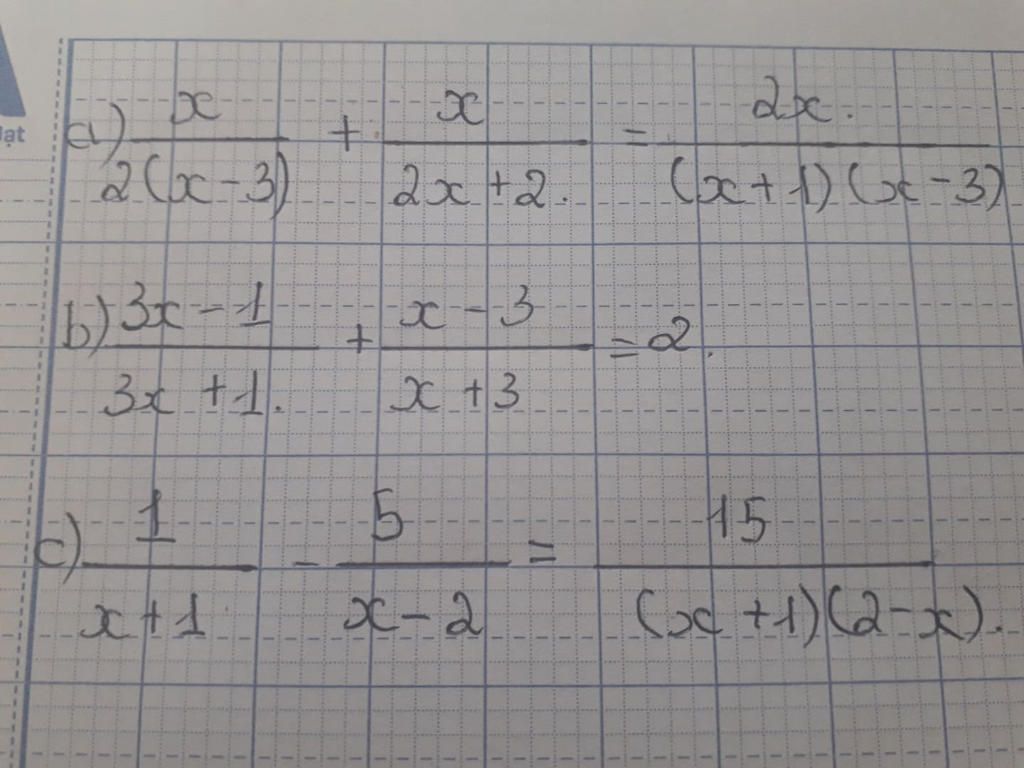 đạt
a) x/(2(x-3)) + x/(2x+2.) = 2x./((x+1)(x-3))
b) (3x-1)/(3x+1.) + (x-3)/(x+3) = 2.
c) 1/(x+1) - 5/(x-2) = 15/((x+1)(2-x).)